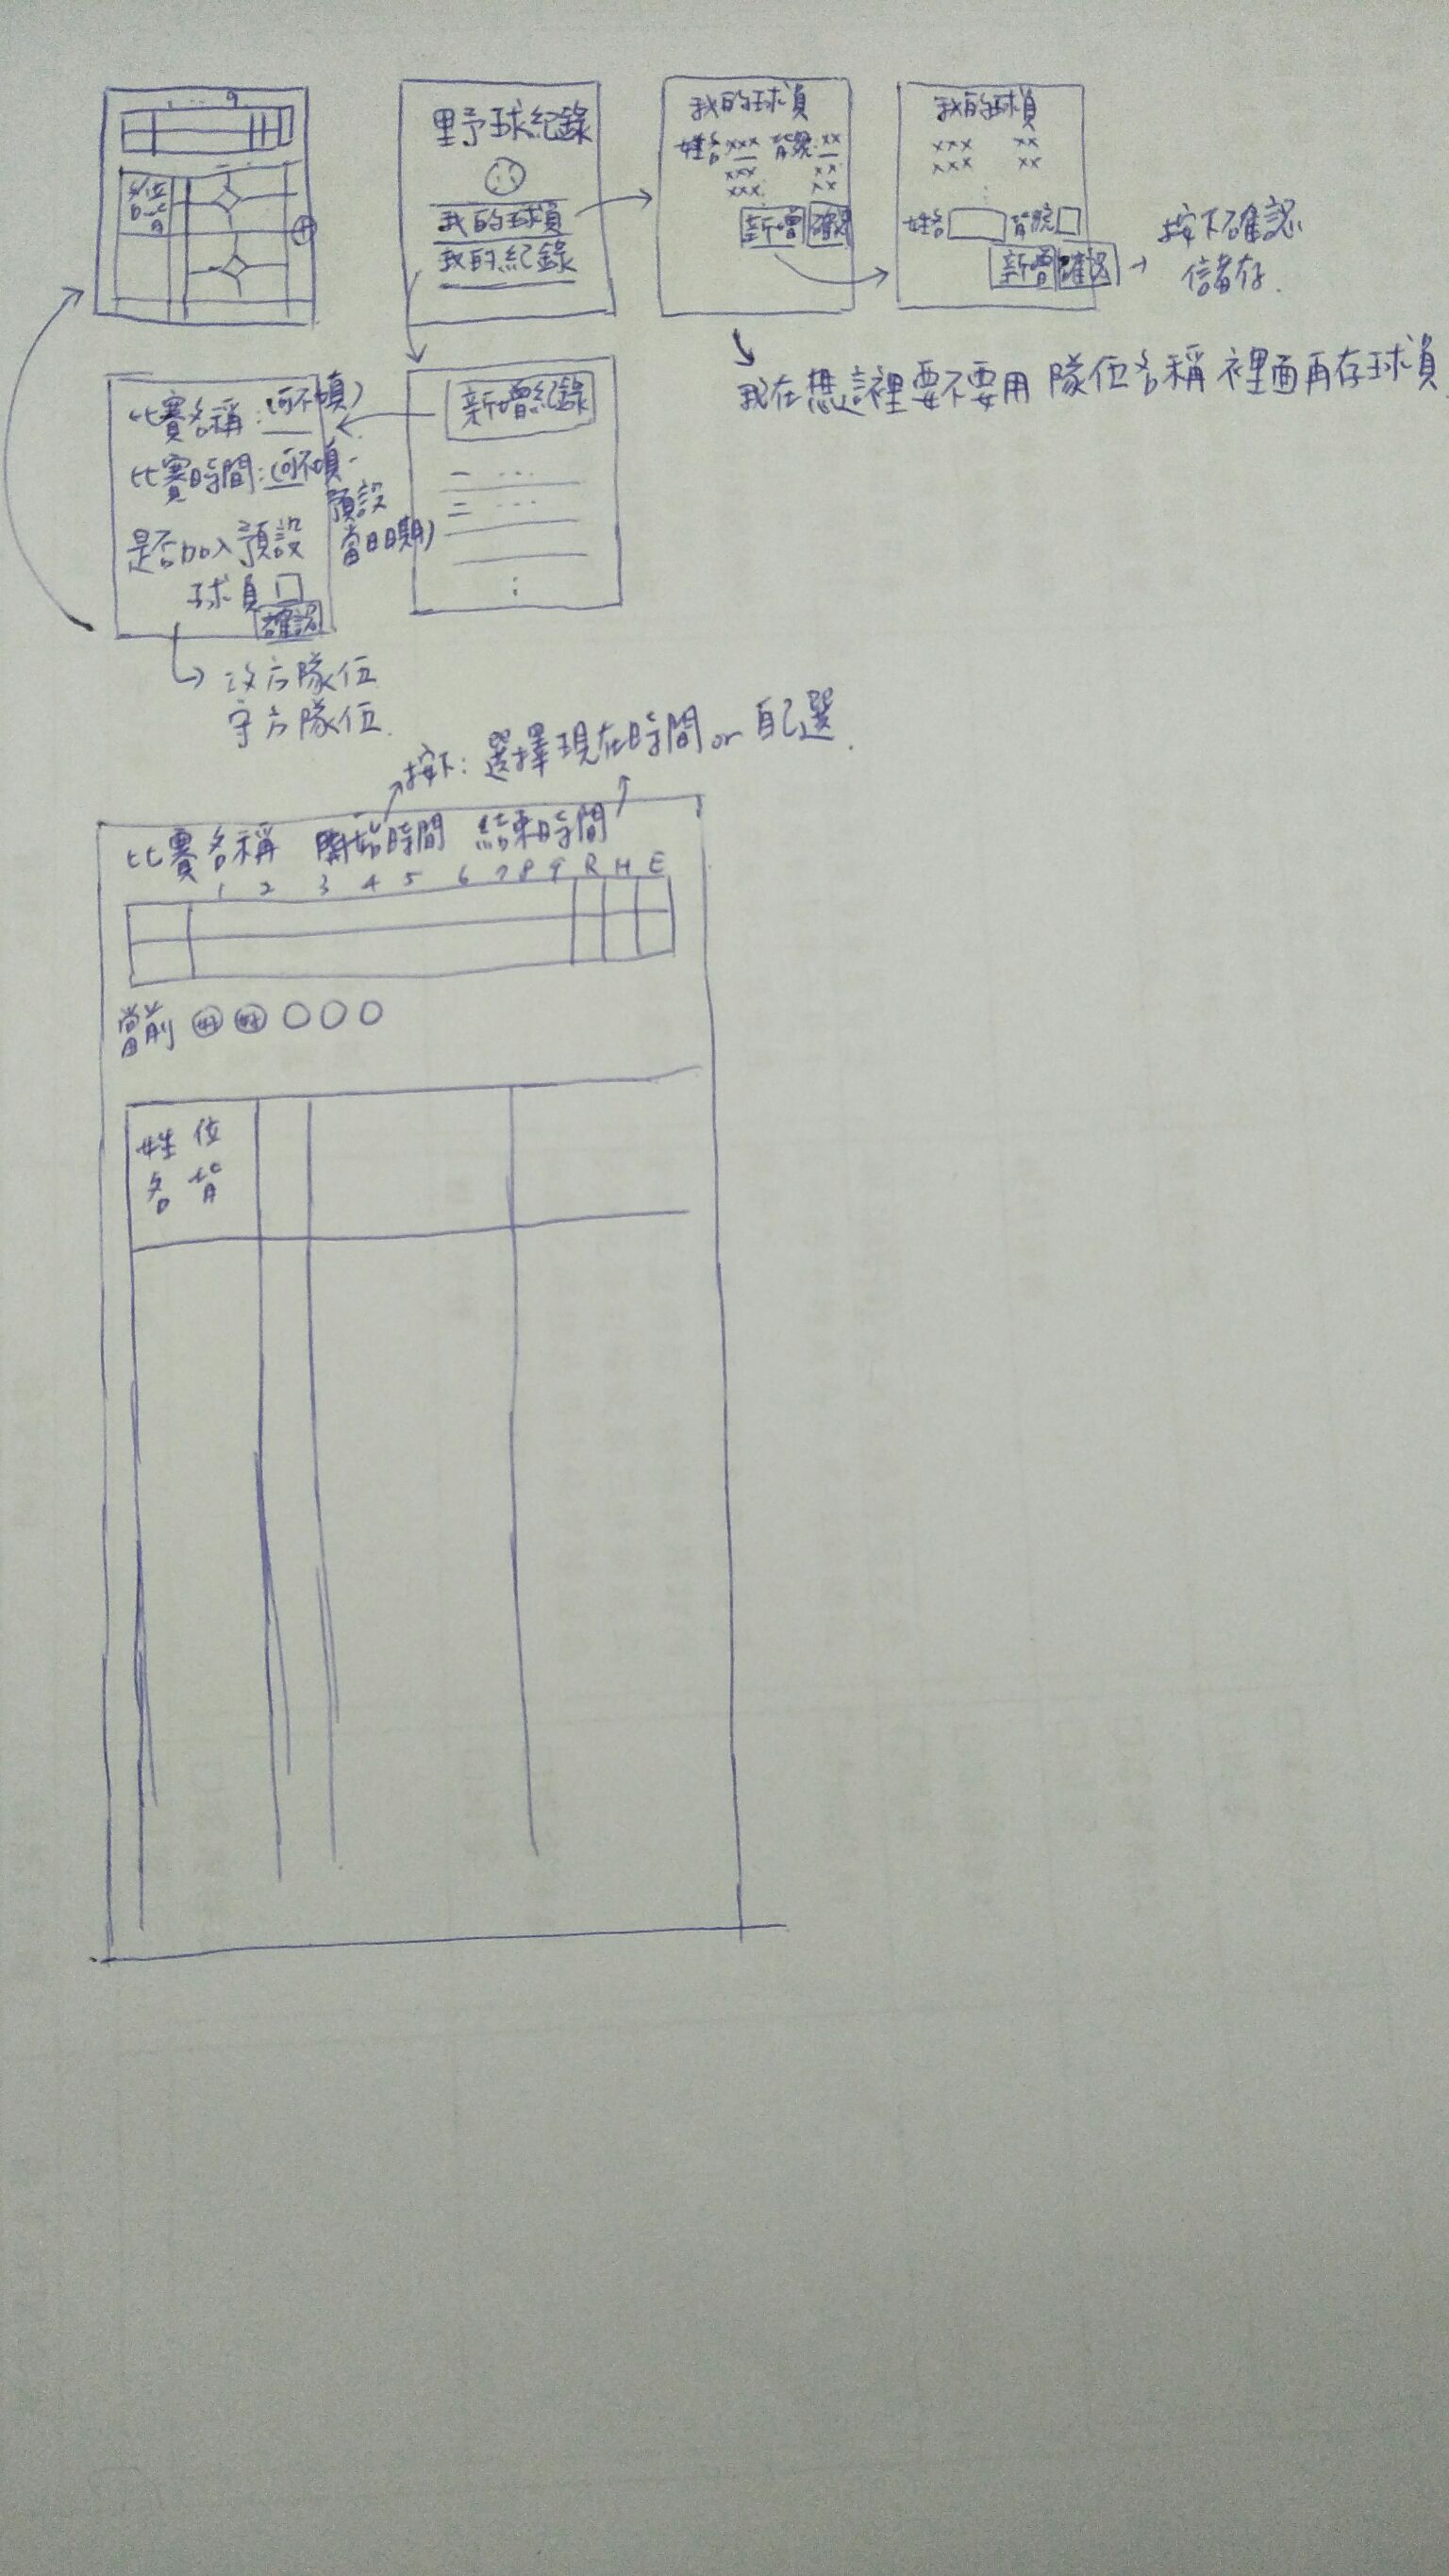 1 ... 9
姓 位
名 背
野球紀錄
我的球員
我的紀錄
我的球員
姓名 xxx 背號: xx
xxx xx
xxx xx
新增 確認
我的球員
xxx xx
xxx xx
姓名 背號
新增 確認
按下確認
儲存.
我在想這裡要不要用 隊伍名稱 裡面再存球員
比賽名稱: (可不填)
比賽時間: (可不填.
預設
當日日期)
是否加入預設
球員
確認
攻方隊伍
守方隊伍.
新增紀錄
一 ...
二 ...
按下: 選擇現在時間 or 自己選.
比賽名稱 開始時間 結束時間
1 2 3 4 5 6 7 8 9 R H E
當前
姓 位
名 背